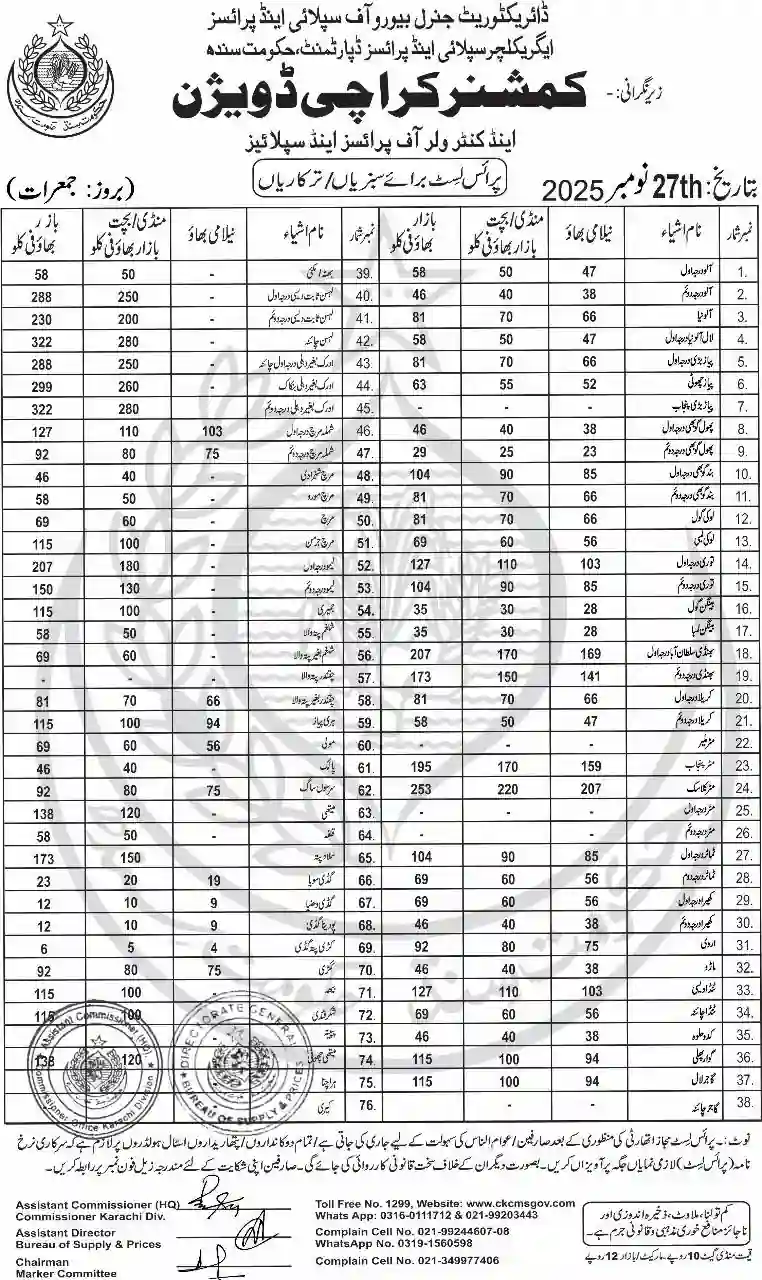 ڈائریکٹوریٹ جنرل بیورو آف سپلائی اینڈ پرائسز
ایگریکلچر سپلائی اینڈ پرائسز ڈپارٹمنٹ، حکومت سندھ
زیر نگرانی :-
کمشنر کراچی ڈویژن
اینڈ کنٹرولر آف پرائسز اینڈ سپلائیز
بتاریخ: 27th نومبر 2025
پرائس لسٹ برائے سبزیاں/ترکاریاں
(بروز: جمعرات)
نمبر شمار نام اشیاء نیلامی بھاؤ منڈی/بچت بازار بھاؤ فی کلو بازار بھاؤ فی کلو نمبر شمار نام اشیاء نیلامی بھاؤ منڈی/بچت بازار بھاؤ فی کلو بازار بھاؤ فی کلو
1. آلو درجہ اول 47 50 58 39. بھٹہ / مکئی - 50 58
2. آلو درجہ دوئم 38 40 46 40. لہسن ثابت دیسی درجہ اول - 250 288
3. آلو نیا 66 70 81 41. لہسن ثابت دیسی درجہ دوئم - 200 230
4. لال آلو نیا درجہ اول 47 50 58 42. لہسن چائنہ - 280 322
5. پیاز بڑی درجہ اول 66 70 81 43. ادرک بغیر دھلی درجہ اول چائنہ - 250 288
6. پیاز چھوٹی 52 55 63 44. ادرک بغیر دھلی بنکاک - 260 299
7. پیاز بڑی پنجاب - - - 45. ادرک بغیر دھلی درجہ دوئم 280 322
8. پھول گوبھی درجہ اول 38 40 46 46. شملہ مرچ درجہ اول 103 110 127
9. پھول گوبھی درجہ دوئم 23 25 29 47. شملہ مرچ درجہ دوئم 75 80 92
10. بند گوبھی درجہ اول 85 90 104 48. مرچ شہزادی - 40 46
11. بند گوبھی درجہ دوئم 66 70 81 49. مرچ مورو - 50 58
12. لوکی گول 66 70 81 50. مرچ - 60 69
13. لوکی لمبی 56 60 69 51. مرچ جرمن - 100 115
14. توری درجہ اول 103 110 127 52. لیمو درجہ اول - 180 207
15. توری درجہ دوئم 85 90 104 53. لیمو درجہ دوئم - 130 150
16. بینگن گول 28 30 35 54. - 100 115
17. بینگن لمبا 28 30 35 55. شلغم پتہ والا - 50 58
18. بھنڈی سلطان آباد درجہ اول 169 170 207 56. شلغم بغیر پتہ والا - 60 69
19. بھنڈی درجہ دوئم 141 150 173 57. چقندر پتہ والا - - -
20. کریلا درجہ اول 66 70 81 58. چقندر بغیر پتہ والا 66 70 81
21. کریلا درجہ دوئم 47 50 58 59. ہری پیاز 94 100 115
22. مٹر ملیر - - - 60. مولی 56 60 69
23. مٹر پنجاب 159 170 195 61. پالک - 40 46
24. مٹر کلاسک 207 220 253 62. سرسوں ساگ 75 80 92
25. مٹر درجہ اول - - - 63. میتھی - 120 138
26. مٹر درجہ دوئم - - - 64. - 50 58
27. ٹماٹر درجہ اول 85 90 104 65. سلاد پتہ 150 173
28. ٹماٹر درجہ دوم 56 60 69 66. گڈی سویا 19 20 23
29. کھیرا درجہ اول 56 60 69 67. گڈی دھنیا 9 10 12
30. کھیرا درجہ دوئم 38 40 46 68. پودینا گڈی 9 10 12
31. اروی 75 80 92 69. کڑی پتہ گڈی 4 5 6
32. مارو 38 40 46 70. ککڑی 75 80 92
33. ٹنڈا دیسی 103 110 127 71. - 100 115
34. ٹنڈا چائنہ 56 60 69 72. شکر قندی 100 115
35. کدو حلوہ 38 40 46 73. پپیتہ
36. گوار پھلی 94 100 115 74. میتھی چھوٹی 120 138
37. گاجر لال 94 100 115 75. ہرا چنا
38. گاجر چائنہ - - 76. کیری
Assistant Commissioner (HQ)
Commissioner Office Karachi Division
DIRECTORATE GENERAL
BUREAU OF SUPPLY & PRICES
نوٹ :- پرائس لسٹ مجاز اتھارٹی کی منظوری کے بعد صارفین / عوام الناس کی سہولت کے لیے جاری کی جاتی ہے / تمام دوکانداروں / پتھاریداروں اسٹال ہولڈروں پر لازم ہے کہ سرکاری نرخ
نامہ (پرائس لسٹ) لازمی نمایاں جگہ پر آویزاں کریں۔ بصورت دیگر ان کے خلاف سخت قانونی کارروائی کی جائے گی۔ صارفین اپنی شکایت کے لئے مندرجہ زیل فون نمبر پر رابطہ کریں۔
Assistant Commissioner (HQ)
Commissioner Karachi Div.
Assistant Director
Bureau of Supply & Prices
Chairman
Marker Committee
Toll Free No. 1299, Website: www.ckcmsgov.com
Whats App: 0316-0111712 & 021-99203443
Complain Cell No. 021-99244607-08
WhatsApp No. 0319-1560598
Complain Cell No. 021-349977406
کم تولنا، ملاوٹ، ذخیرہ اندوزی اور
ناجائز منافع خوری مذہبی و قانونی جرم ہے۔
قیمت منڈی گیٹ 10 روپے، مارکیٹ / بازار 12 روپے